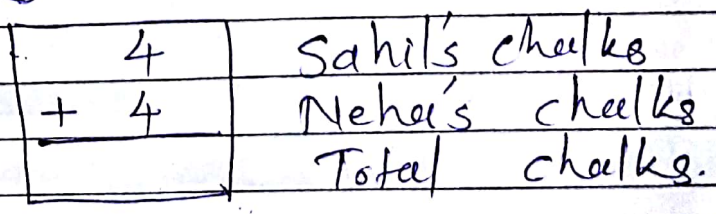 4 Sahil's chalks
+ 4 Neha's chalks
Total chalks.